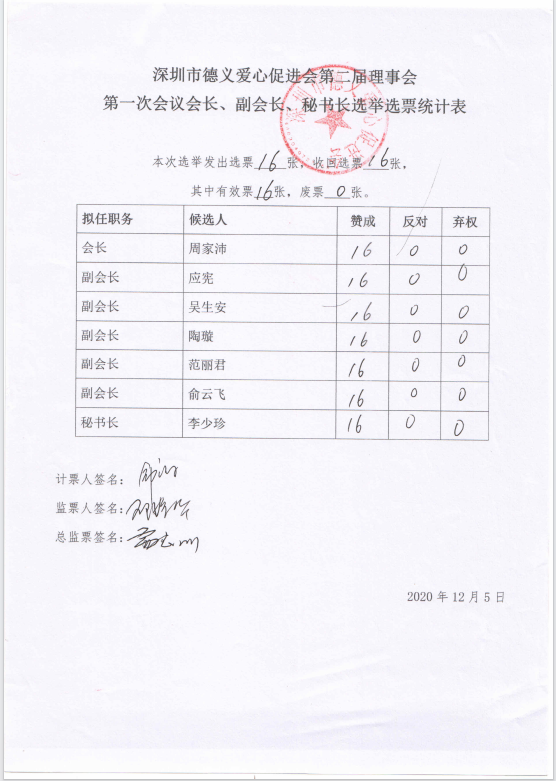 深圳市德义爱心促进会第二届理事会
第一次会议会长、副会长、秘书长选举选票统计表
本次选举发出选票16张，收回选票16张，
其中有效票16张，废票0张。
拟任职务 候选人 赞成 反对 弃权
会长 周家沛 16 0 0
副会长 应宪 16 0 0
副会长 吴生安 16 0 0
副会长 陶璇 16 0 0
副会长 范丽君 16 0 0
副会长 俞云飞 16 0 0
秘书长 李少珍 16 0 0
计票人签名：
监票人签名：
总监票签名：
2020 年 12 月 5 日